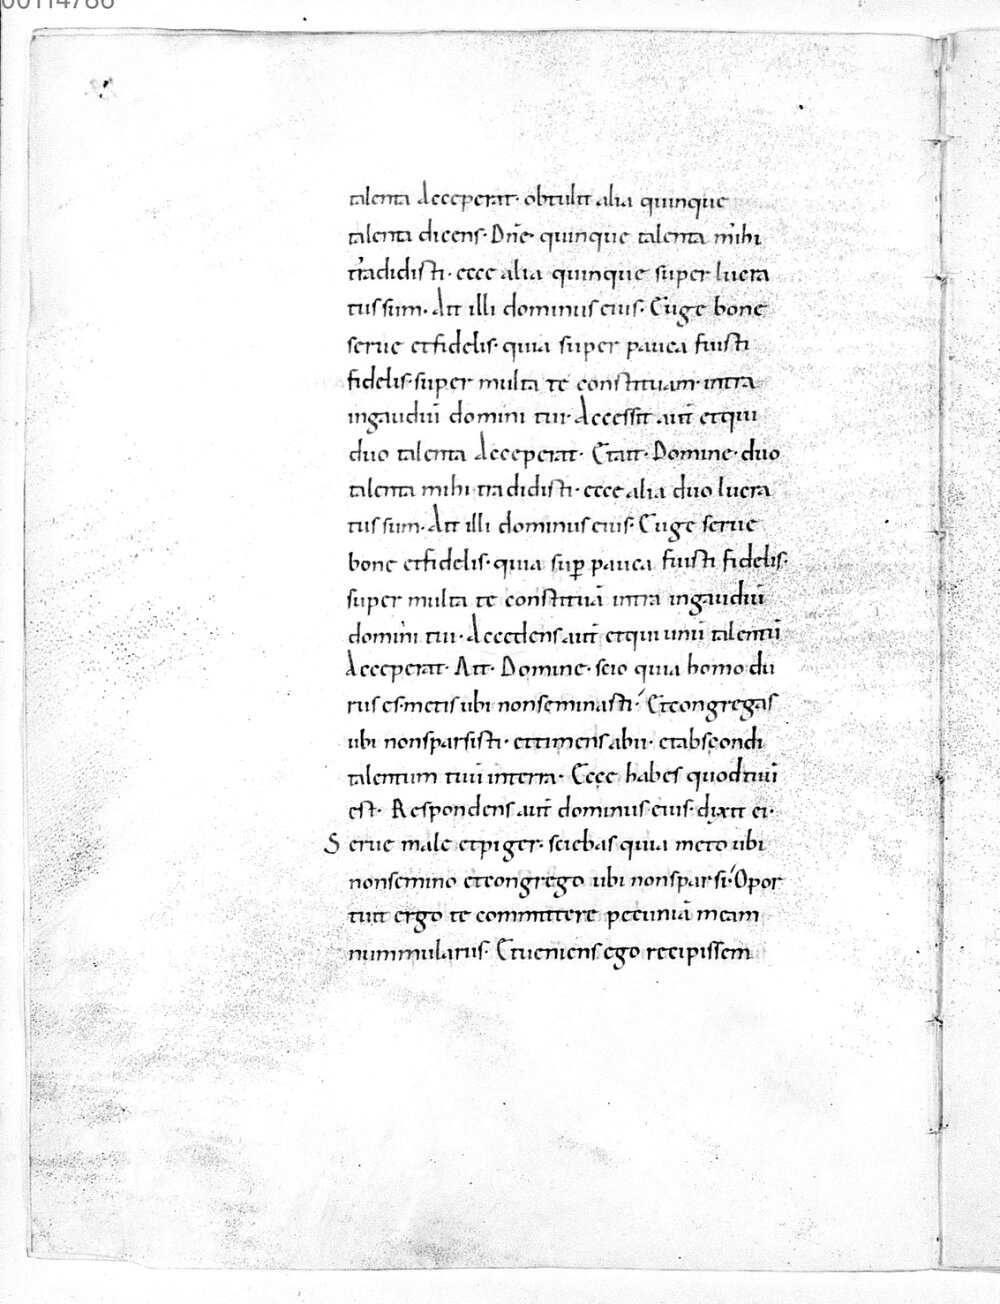 00114786
talenta Acceperat· obtulit alia quinque
talenta dicens· Dn̄e· quinque talenta mihi
tradidisti· ecce alia quinque super lucra
tus sum· Ait illi dominus eius· Euge bone
serue et fidelis· quia super pauca fuisti
fidelis· super multa te constituam· intra
in gaudiū domini tui· Accessit aut̄ et qui
duo talenta Acceperat· Et ait· Domine· duo
talenta mihi tradidisti· ecce alia duo lucra
tus sum· Ait illi dominus eius· Euge serue
bone et fidelis· quia sup̱ pauca fuisti fidelis·
super multa te constituā intra in gaudiū
domini tui· Accedens aut̄ et qui unū talentū
Acceperat· Ait· Domine· scio quia homo du
rus es· metis ubi non seminasti· Et congregas
ubi non sparsisti· et timens abii· et abscondi
talentum tuū in terra· Ecce habes quod tuū
est· Respondens aut̄ dominus eius· dixit ei·
Serue male et piger· sciebas quia meto ubi
non semino et congrego ubi non sparsi· Opor
tuit ergo te committere pecuniā meam
nummulariis· Et ueniens ego recipissem